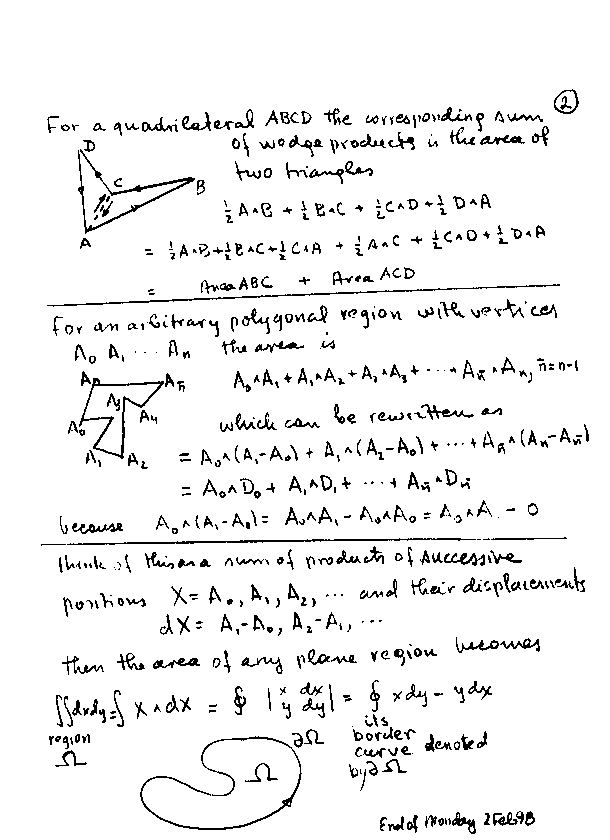 ②
For a quadrilateral ABCD the corresponding sum
of wedge products is the area of
two triangles
D
C
B
A
½A∧B + ½B∧C + ½C∧D + ½D∧A
= ½A∧B + ½B∧C + ½C∧A + ½A∧C + ½C∧D + ½D∧A
= Area ABC + Area ACD
For an arbitrary polygonal region with vertices
A₀ A₁ ⋯ Aₙ the area is
Aₙ
Aₙ̄
A₃
A₄
A₀
A₁
A₂
A₀∧A₁ + A₁∧A₂ + A₂∧A₃ + ⋯ + Aₙ̄∧Aₙ, n̄=n-1
which can be rewritten as
= A₀∧(A₁-A₀) + A₁∧(A₂-A₀) + ⋯ + Aₙ̄∧(Aₙ-Aₙ̄)
= A₀∧D₀ + A₁∧D₁ + ⋯ + Aₙ̄∧Dₙ̄
because A₀∧(A₁-A₀) = A₀∧A₁ - A₀∧A₀ = A₀∧A₁ - 0
Think of this as a sum of products of successive
positions X = A₀, A₁, A₂, ⋯ and their displacements
dX = A₁-A₀, A₂-A₁, ⋯
then the area of any plane region becomes
∬dxdy = ∫ X∧dX = ∮ |x dx y dy| = ∮ xdy - ydx
region
Ω
∂Ω
its
border
curve denoted
by ∂Ω
Ω
End of Monday 2Feb98